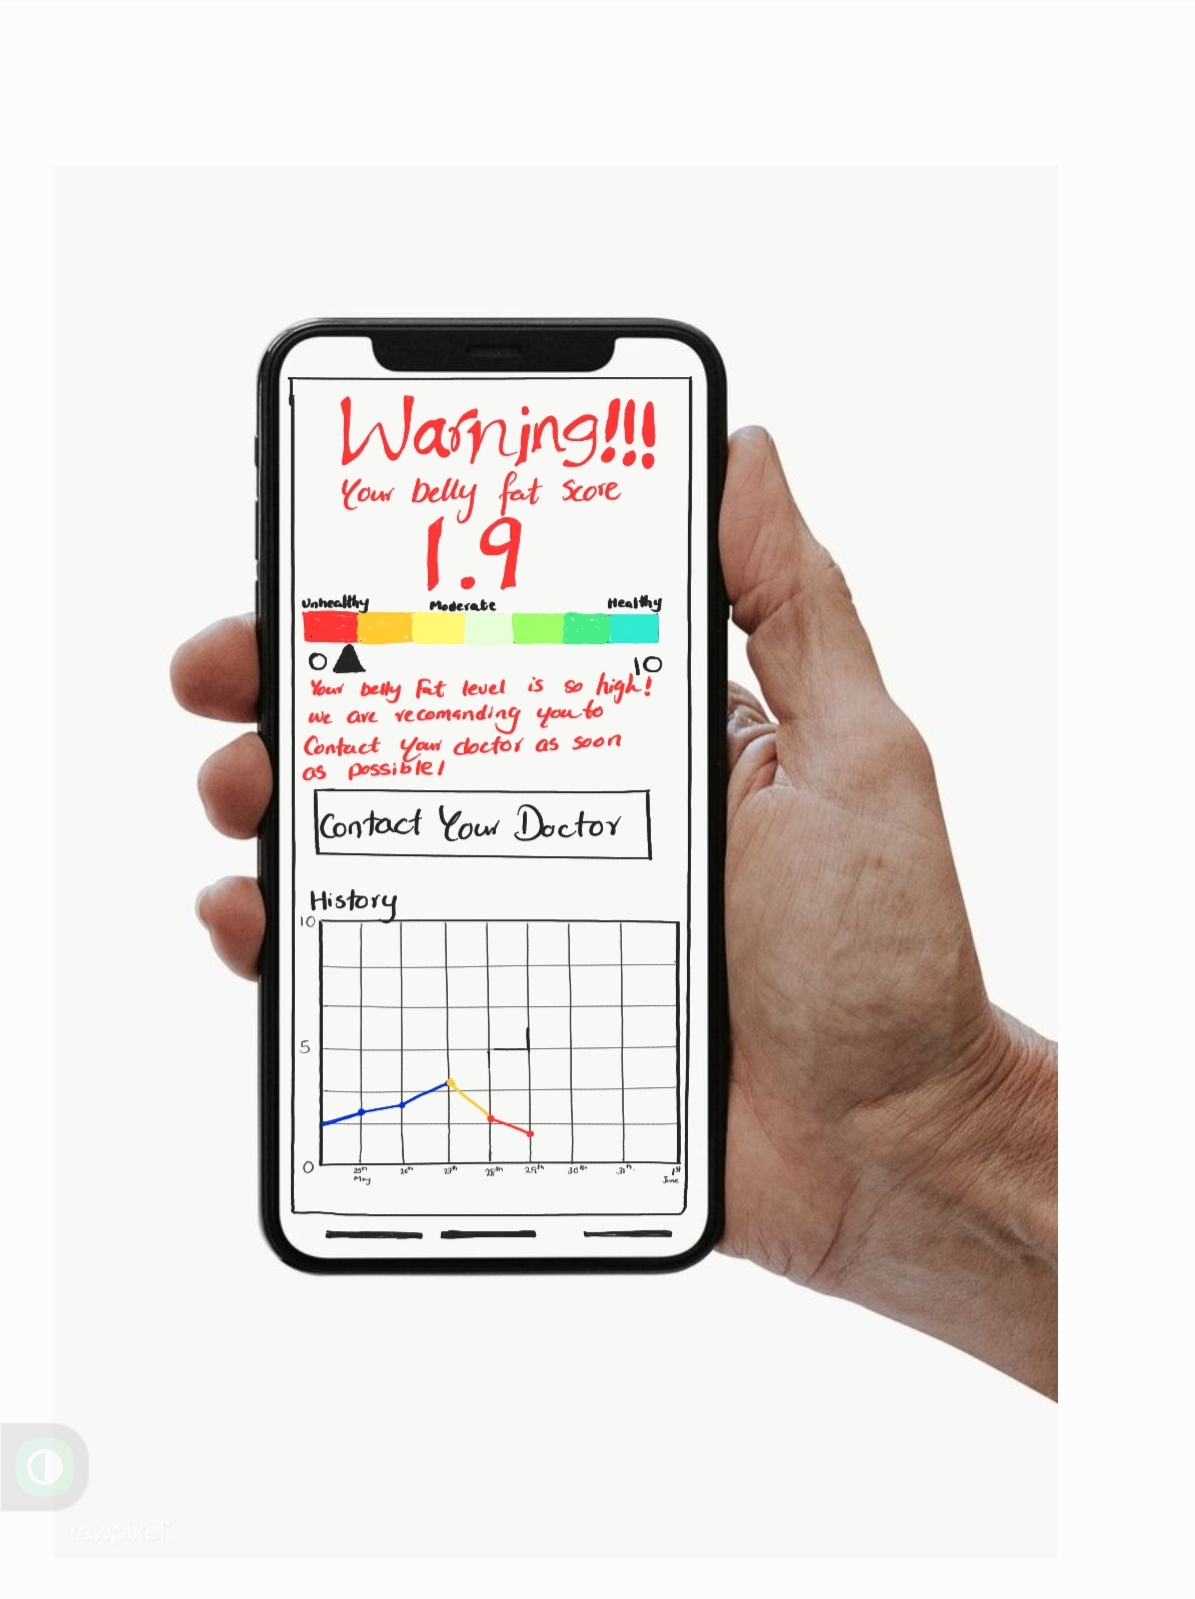 Warning!!!
Your belly fat score
1.9
Unhealthy Moderate Healthy
0 10
Your belly Fat level is so high!
we are recomanding you to
Contact Your doctor as soon
as possible!
Contact Your Doctor
History
10
5
0
25th 26th 27th 28th 29th 30th 31th. 1st
May June
rawpixel